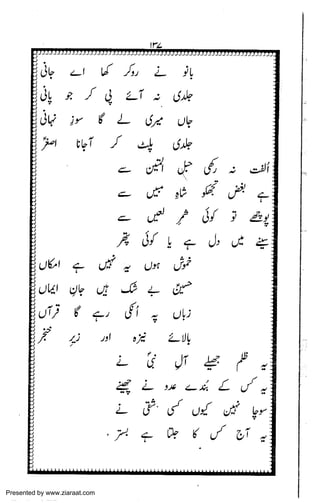 ۱۳۷
بانو نے روکر کہا اے جانی
جلدی نہ آئے پی کر جو پانی
جاں میری لے گا سوز نہانی
جلدی پلٹ کر آجانا اصغرؑ
الفت نہ رکھی حبل المتیں سے
ہے بغض تجھکو شاہ مبیں سے
پوچھے تو کوئی شمر لعیں سے
سینے میں دل ہے یا کوئی پتھر
خموش ہوں یہ نہیں ہے امکاں
حسینؑ بے شک ہیں جان ایماں
زباں پہ اُنکی رہے گا قرآں
بالائے نیزہ اور زیر خنجر
یہ ظلم جھیلے آل نبیؐ نے
یہ کس کے بُندے عدو نے چھینے
سوچا نہیں کیوں کسی شقی نے
یہ آج کس کا جلتا ہے بستر
Presented by www.ziaraat.com